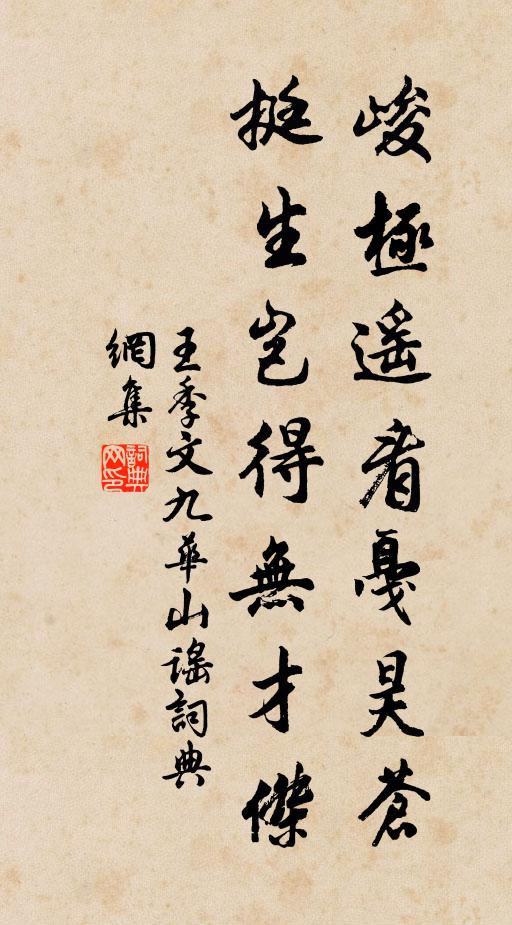 峻極遥看戞昊蒼
挺生岂得無才傑
王季文九華山谣詞典
網集
詞典
网印